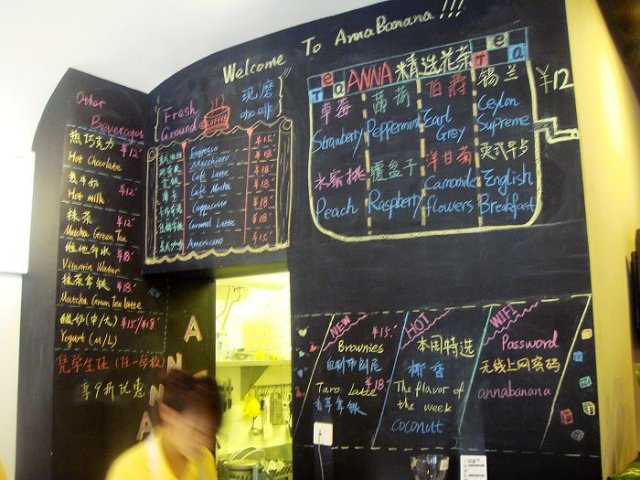 Welcome To AnnaBanana!!!
Other
Beverages
热巧克力 ¥12
Hot Chocolate
热牛奶 ¥12
Hot milk
抹茶 ¥12
Matcha Green Tea
维他命水 ¥18
Vitamin Water
抹茶拿铁 ¥18
Matcha Green Tea latte
酸奶(中/大) ¥15/¥18
Yogurt (M/L)
凭学生证(任一学校)
享9折优惠
Fresh
Ground
COFFEE
现磨
咖啡
Espresso ¥15
Macchiato
Café Latte ¥18
Café Mocha ¥18
Cappuccino ¥18
Caramel Latte ¥18
Americano ¥15
Tea ANNA 精选花茶 Tea
¥12
草莓 薄荷 伯爵 锡兰
Strawberry Peppermint Earl Grey Ceylon Supreme
水蜜桃 覆盆子 洋甘菊 英式早点
Peach Raspberry Camomile flowers English Breakfast
ANNA
NEW
¥15
Brownies
自制布朗尼
Taro Latte ¥18
香芋拿铁
HOT
本周特选
椰香
The flavor of
the week
coconut
WIFI
Password
无线上网密码
annabanana